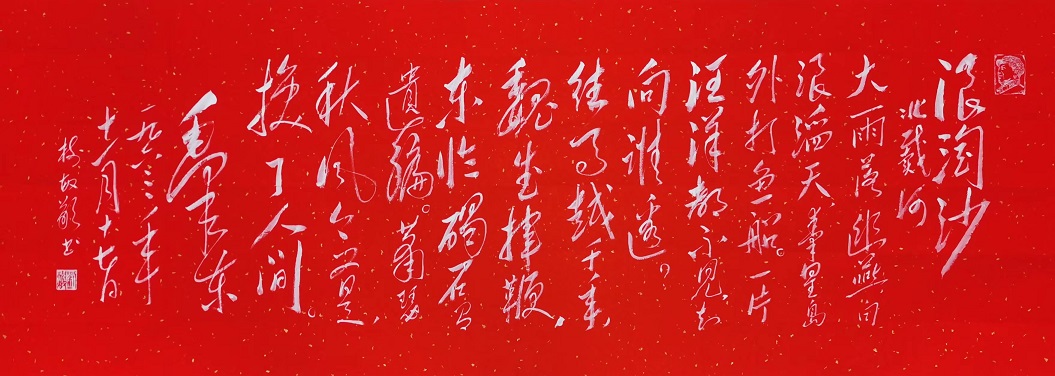 浪淘沙
北戴河
大雨落幽燕白
浪滔天秦皇岛
外打鱼船。一片
汪洋都不见知
向谁边?
往事越千年,
魏武挥鞭,
东临碣石有
遗篇。萧瑟
秋风今又是,
换了人间。
毛泽东
一九六二年
十一月十七日
书